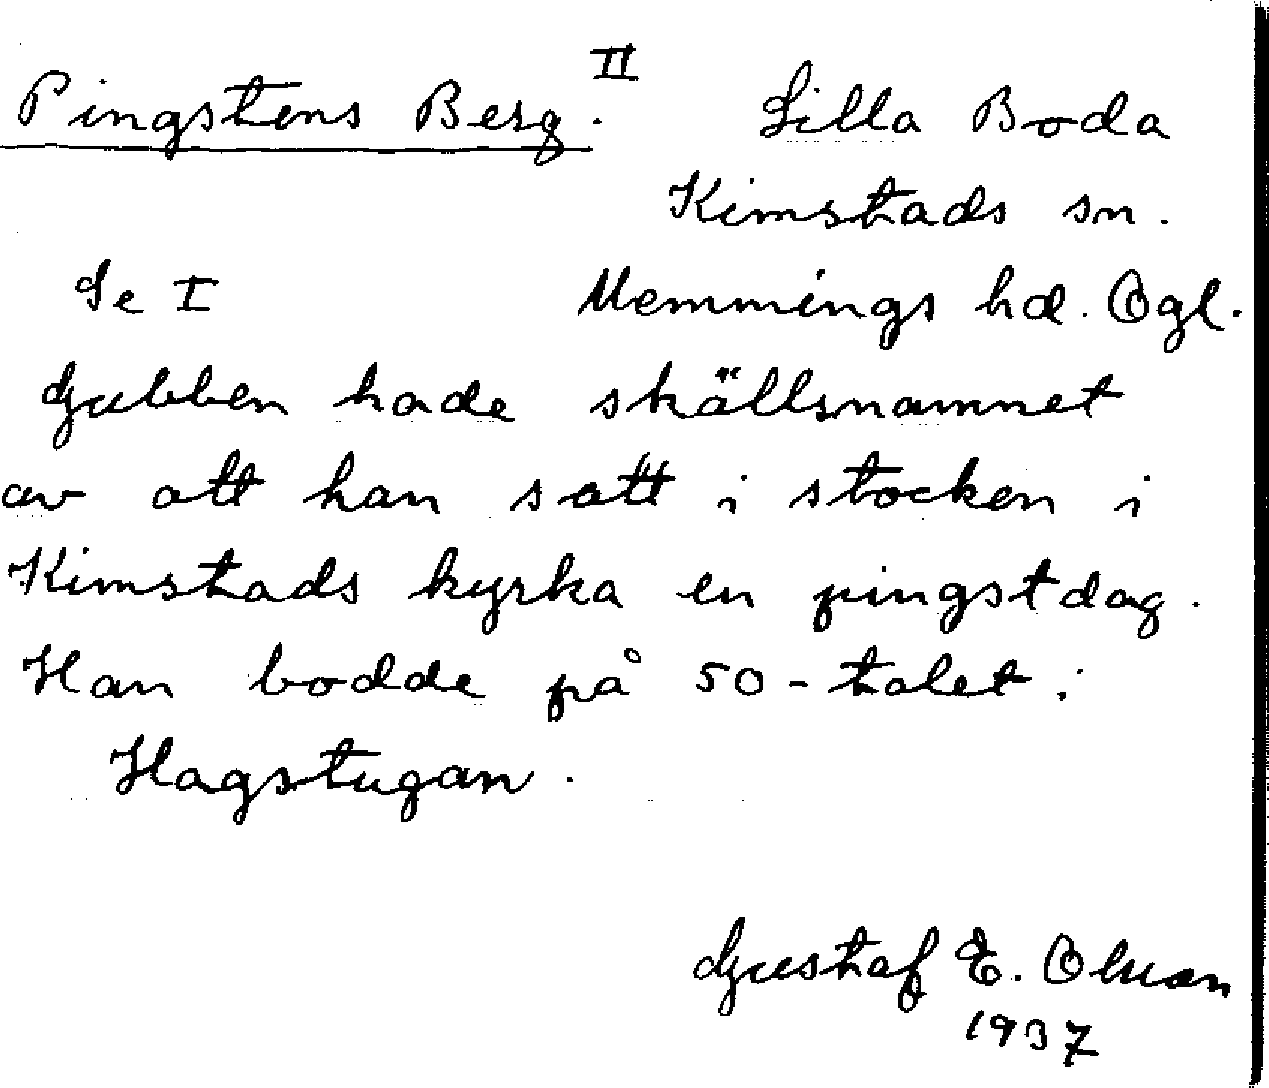 Pingstens Berg. II
Lilla Boda
Kimstads sn.
Se I
Memmings hd. Ögl.
Gubben hade skällsnamnet
av att han satt i stocken i
Kimstads kyrka en pingstdag.
Han bodde på 50-talet i
Hagstugan.
Gustaf E. Olsson
1937